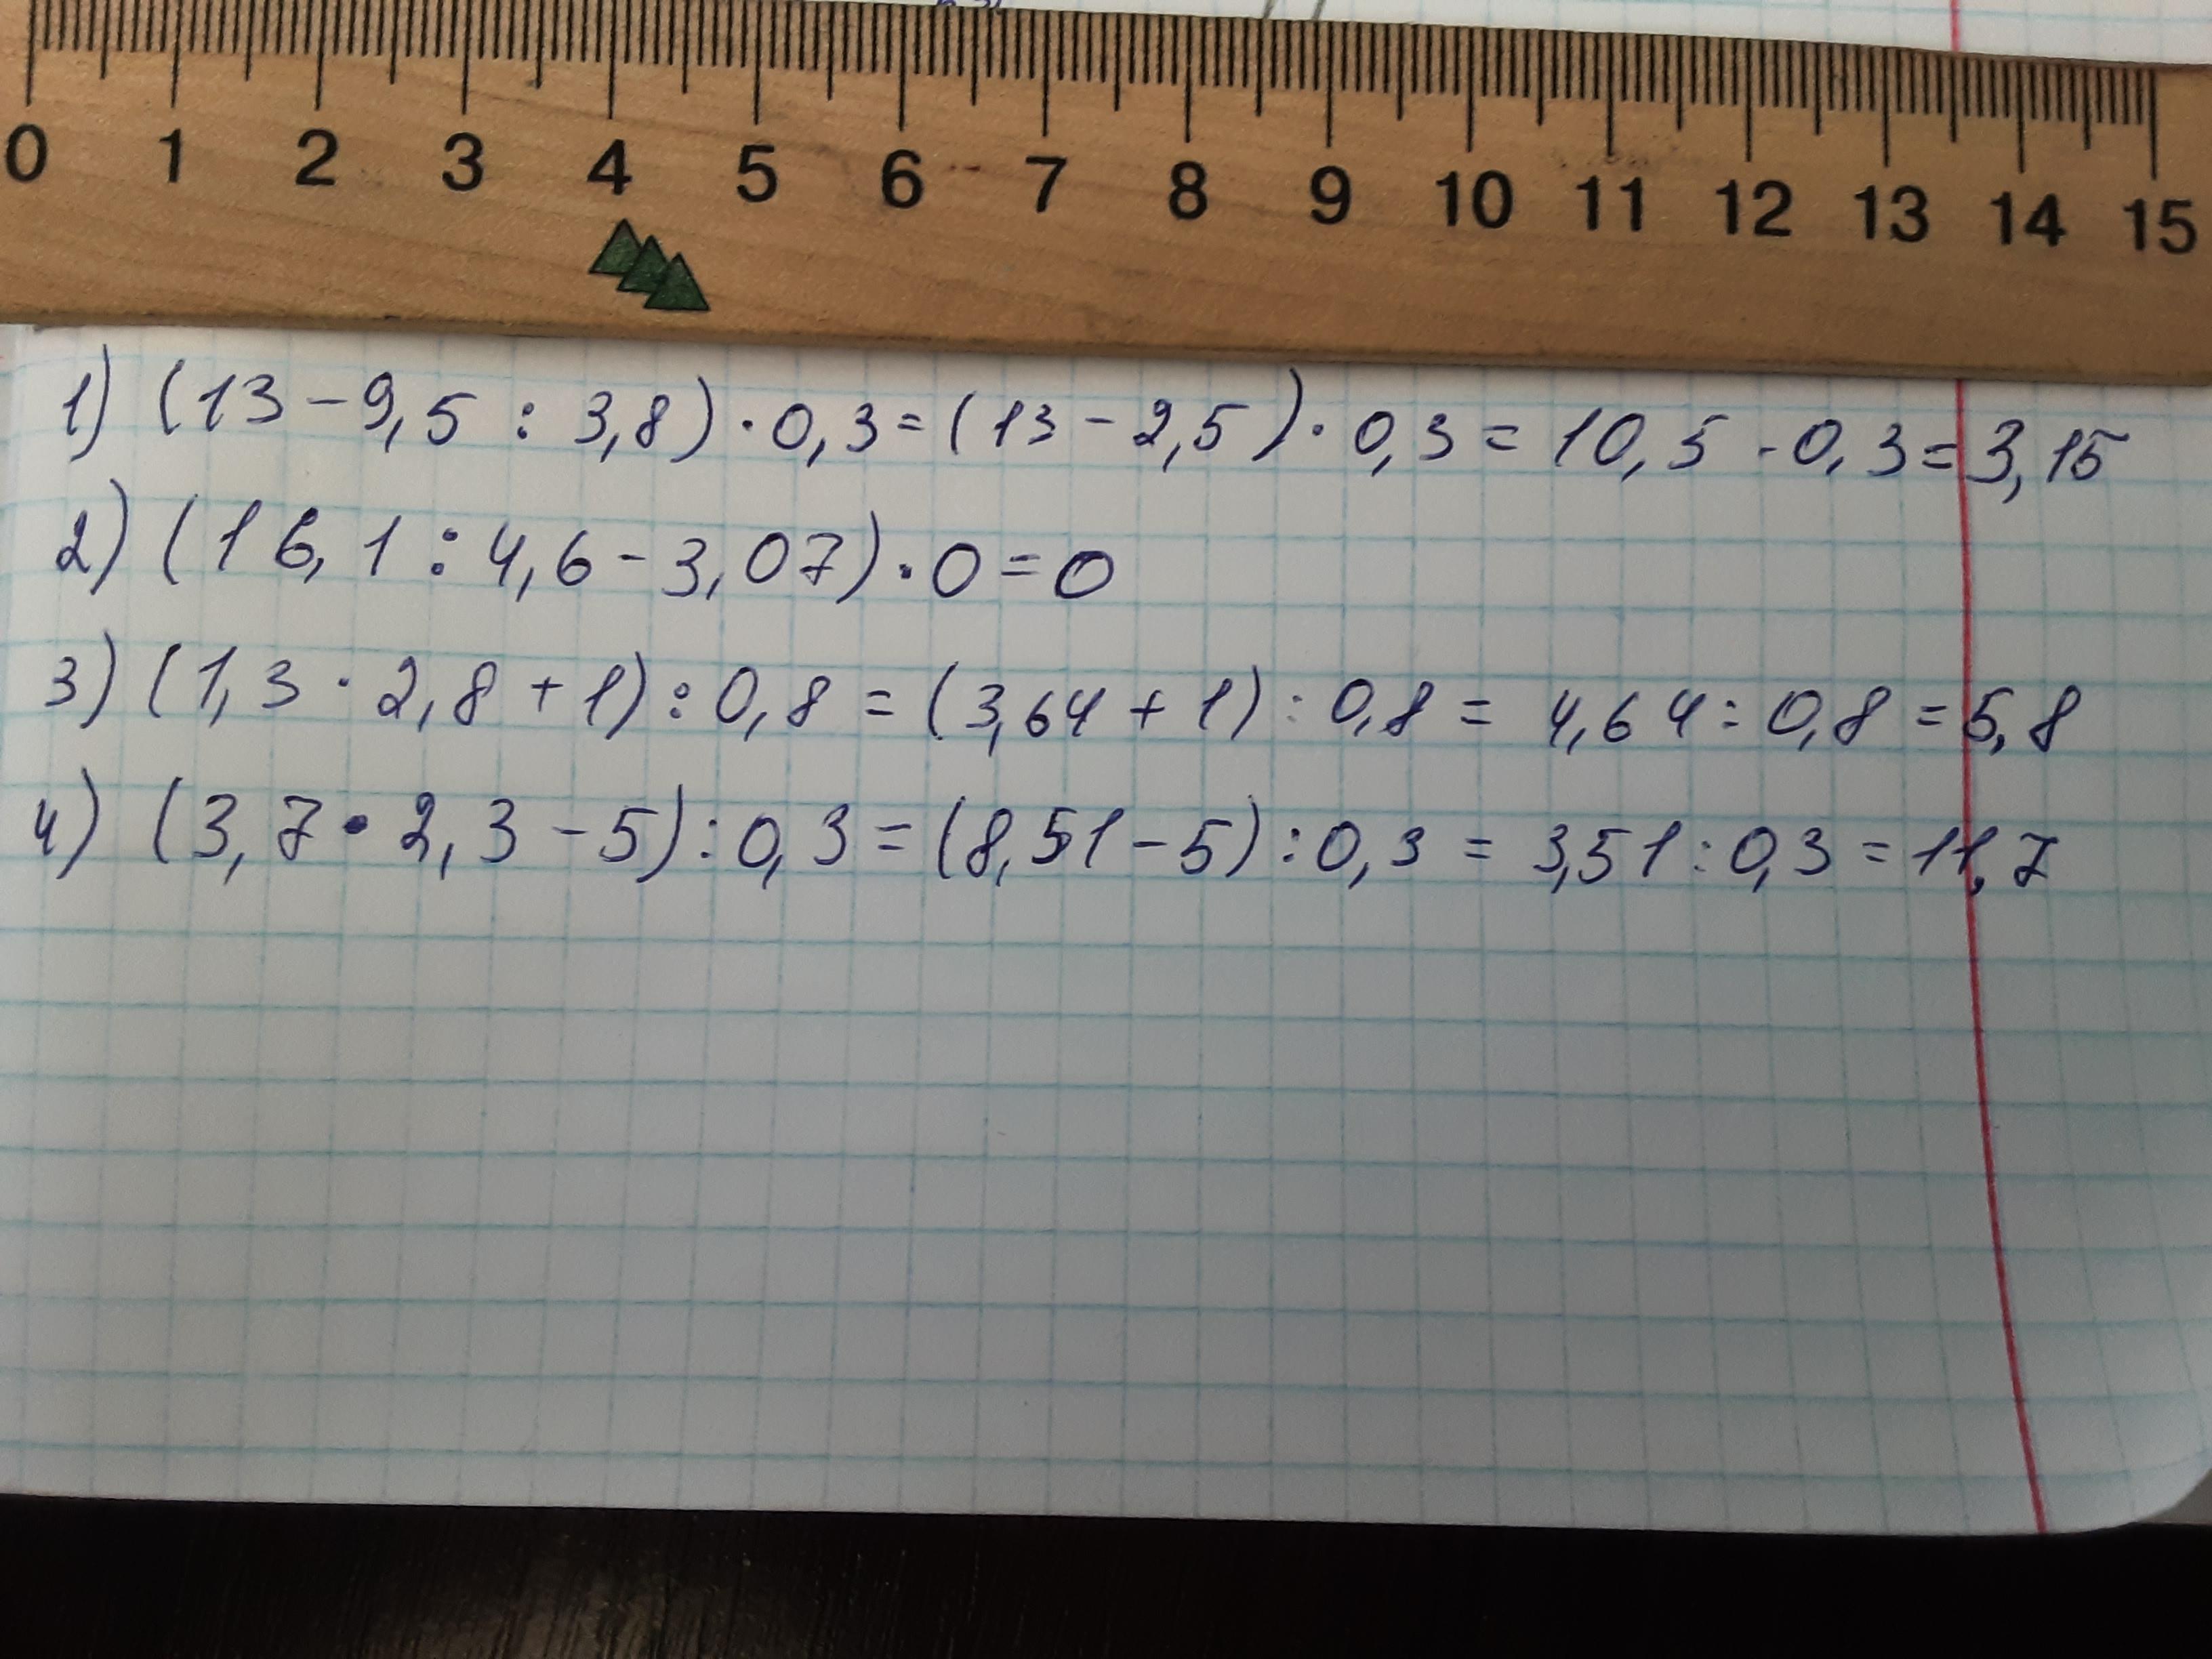 0 1 2 3 4 5 6 7 8 9 10 11 12 13 14 15
1) (13 - 9,5 : 3,8) · 0,3 = (13 - 2,5) · 0,3 = 10,5 · 0,3 = 3,15
2) (16,1 : 4,6 - 3,07) · 0 = 0
3) (1,3 · 2,8 + 1) : 0,8 = (3,64 + 1) : 0,8 = 4,64 : 0,8 = 5,8
4) (3,7 · 2,3 - 5) : 0,3 = (8,51 - 5) : 0,3 = 3,51 : 0,3 = 11,7